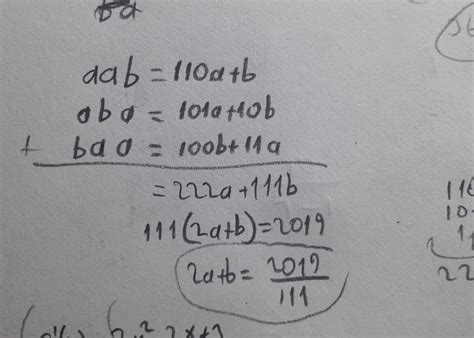 ba
aab = 110a+b
aba = 101a+10b
+ baa = 100b+11a
= 222a+111b
111(2a+b)=2019
2a+b= 2019/111
116
10
11
22